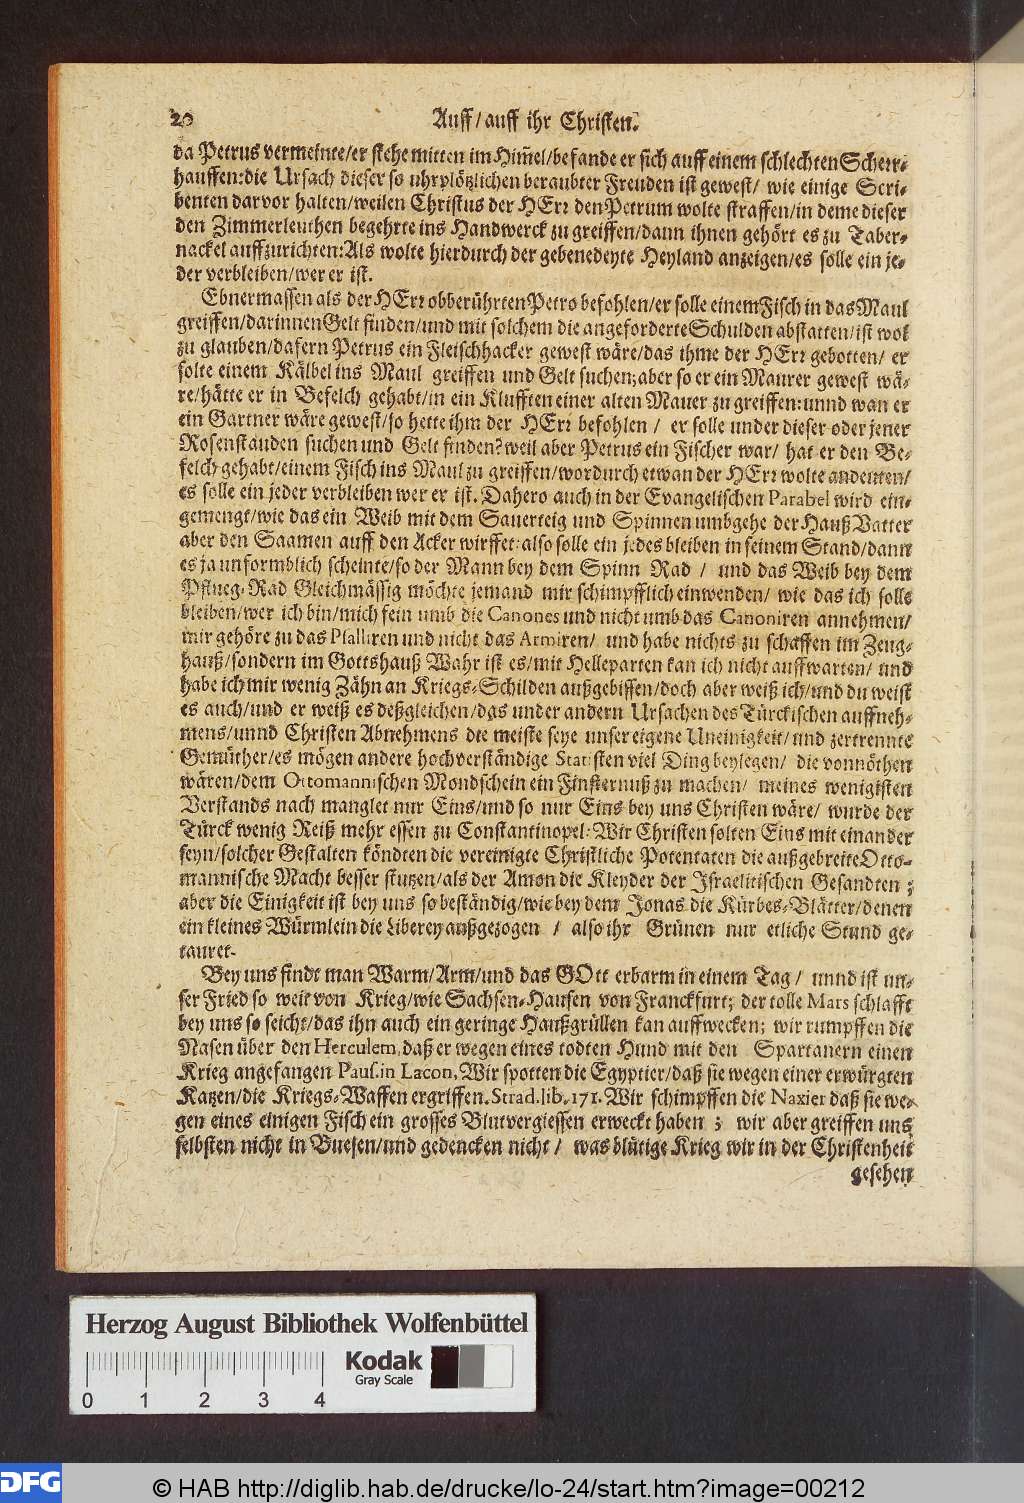 20 Auff/ auff ihr Christen.
da Petrus vermeinte/ er stehe mitten im Him̃el/ befande er sich auff einem schlechten Scherr-
hauffen: die Ursach dieser so uhrplötzlichen beraubter Freuden ist gewest/ wie einige Scri-
benten darvor halten/ weilen Christus der HErꝛ den Petrum wolte straffen/ in deme dieser
den Zimmerleuthen begehrte ins Handwerck zu greiffen/ dann ihnen gehört es zu Taber-
nackel auffzurichten: Als wolte hierdurch der gebenedeyte Heyland anzeigen/ es solle ein je-
der verbleiben/ wer er ist.
Ebnermassen als der HErꝛ obberührten Petro befohlen/ er solle einem Fisch in das Maul
greiffen/ darinnen Gelt finden/ und mit solchem die angeforderte Schulden abstatten/ ist wol
zu glauben/ dafern Petrus ein Fleischhacker gewest wäre/ das ihme der HErꝛ gebotten/ er
solte einem Kälbel ins Maul greiffen und Gelt suchen; aber so er ein Maurer gewest wä-
re/ hätte er in Befelch gehabt/ in ein Klufften einer alten Mauer zu greiffen: unnd wan er
ein Gartner wäre gewest/ so hette ihm der HErꝛ befohlen / er solle under dieser oder jener
Rosenstauden suchen und Gelt finden? weil aber Petrus ein Fischer war/ hat er den Be-
felch gehabt/ einem Fisch ins Maul zu greiffen/ wordurch etwan der HErꝛ wolte andeuten/
es solle ein jeder verbleiben wer er ist. Dahero auch in der Evangelischen Parabel wird ein-
gemengt/ wie das ein Weib mit dem Sauerteig und Spinnen umbgehe der Hauß Vatter
aber den Saamen auff den Acker wirffet: also solle ein jedes bleiben in seinem Stand/ dann
es ja unformblich scheinte/ so der Mann bey dem Spinn Rad / und das Weib bey dem
Pflueg-Rad Gleichmässig möchte jemand mir schimpfflich einwenden/ wie das ich solle
bleiben/ wer ich bin/ mich fein umb die Canones und nicht umb das Canoniren annehmen/
mir gehöre zu das Psalliren und nicht das Armiren/ und habe nichts zu schaffen im Zeug-
hauß/ sondern im Gottshauß Wahr ist es/ mit Helleparten kan ich nicht auffwarten/ und
habe ich mir wenig Zähn an Kriegs-Schilden außgebissen/ doch aber weiß ich/ und du weist
es auch/ und er weiß es deßgleichen/ das under andern Ursachen des Türckischen auffneh-
mens/ unnd Christen Abnehmens die meiste seye unser eigene Uneinigkeit/ und zertrennte
Gemüther/ es mögen andere hochverständige Statisten viel Ding beylegen/ die vonnöthen
wären/ dem Ottomannischen Mondschein ein Finsternuß zu machen/ meines wenigisten
Verstands nach manglet nur Eins/ und so nur Eins bey uns Christen wäre/ wurde der
Türck wenig Reiß mehr essen zu Constantinopel: Wir Christen solten Eins mit einander
seyn/ solcher Gestalten köndten die vereinigte Christliche Potentaten die außgebreite Otto-
mannische Macht besser stutzen/ als der Amon die Kleyder der Israelitischen Gesandten ;
aber die Einigkeit ist bey uns so beständig/ wie bey dem Jonas die Kürbes-Blätter/ denen
ein kleines Würmlein die Liberey außgezogen / also ihr Grünen nur etliche Stund ge-
tauret.
Bey uns findt man Warm/ Arm/ und das GOtt erbarm in einem Tag/ unnd ist un-
ser Fried so weit von Krieg/ wie Sachsen-Hausen von Franckfurt; der tolle Mars schlafft
bey uns so seicht/ das ihn auch ein geringe Haußgrüllen kan auffwecken; wir rumpffen die
Nasen über den Herculem, daß er wegen eines todten Hund mit den Spartanern einen
Krieg angefangen Paus. in Lacon, Wir spotten die Egyptier/ daß sie wegen einer erwürgten
Katzen/ die Kriegs-Waffen ergriffen. Strad. lib. 171. Wir schimpffen die Naxier daß sie we-
gen eines einigen Fisch ein grosses Blutvergiessen erweckt haben ; wir aber greiffen uns
selbsten nicht in Buesen/ und gedencken nicht / was blütige Krieg wir in der Christenheit
gesehen
Herzog August Bibliothek Wolfenbüttel
Kodak
Gray Scale
0 1 2 3 4
DFG © HAB http://diglib.hab.de/drucke/lo-24/start.htm?image=00212